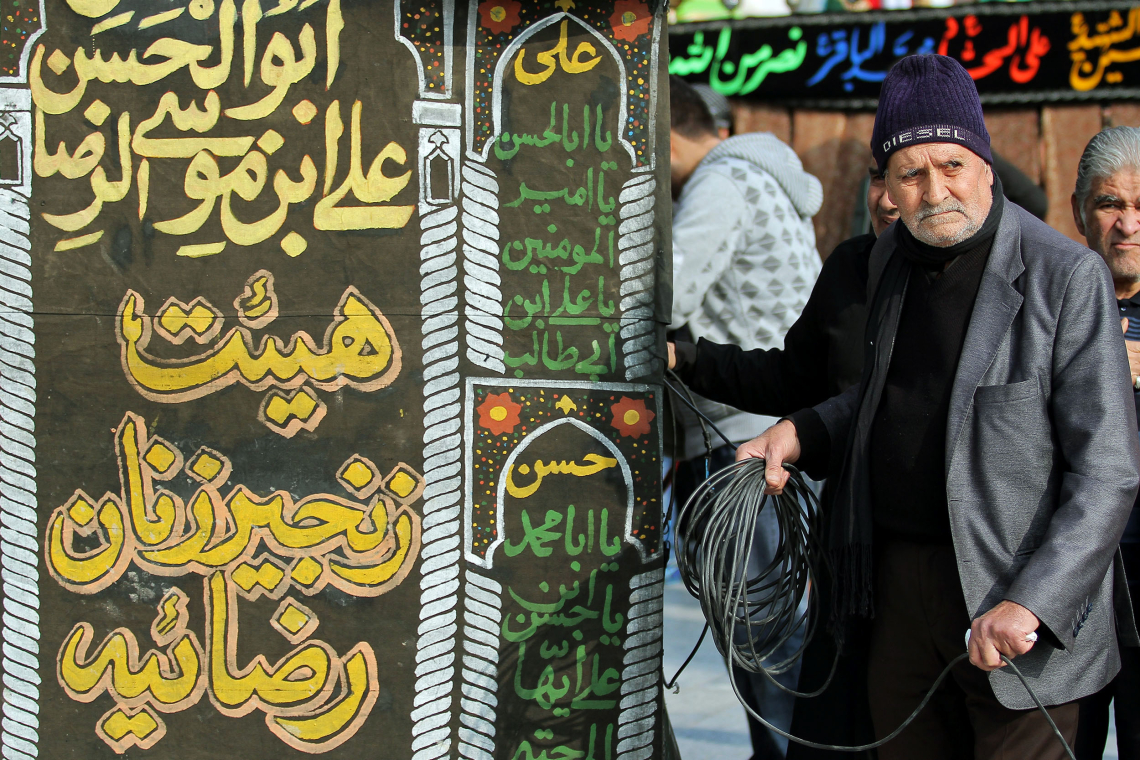 ابوالحسن
علی ابن موسی الرضا
هیئت
زنجیرزنان
رضائیه
علی
یا ابالحسن
یا امیر
المومنین
یا علی ابن
ابی طالب
حسن
یا ابا محمد
یا حسن ابن
علی ایها
المجتبی
نصر من الله
محمد الباقر
DIESEL